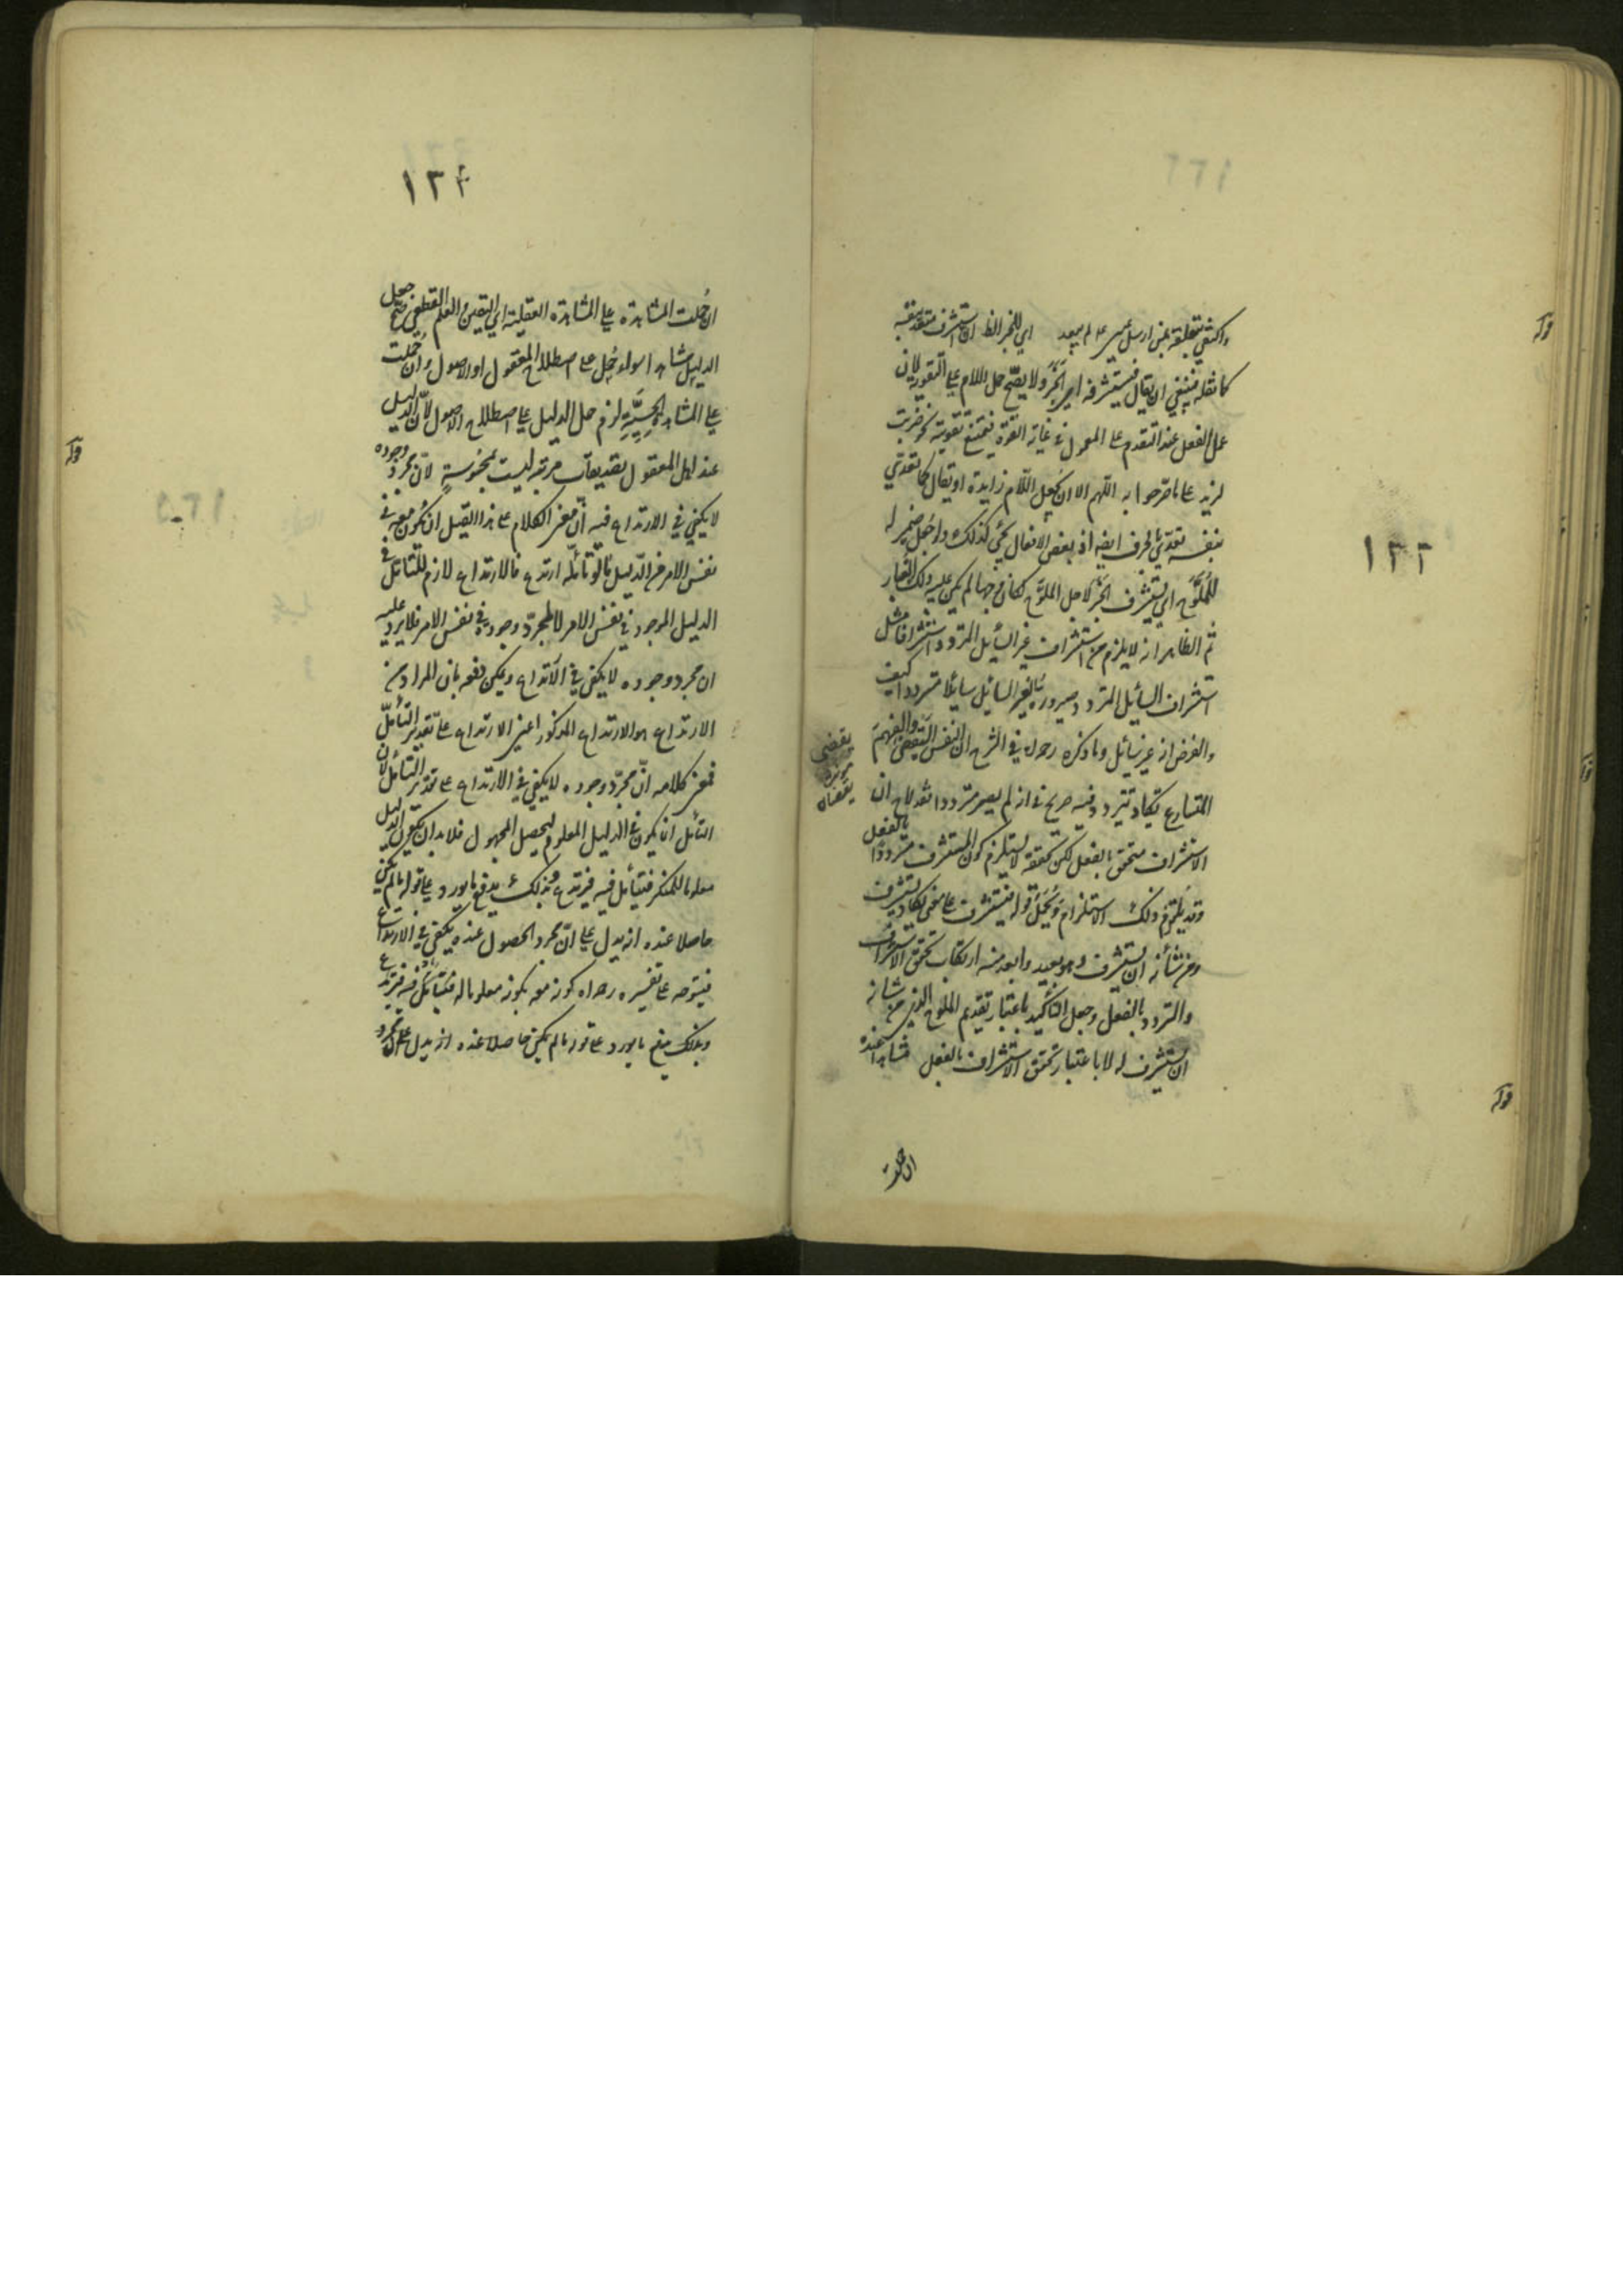 ١٣٣
واكتفى بتعلقه بمن ارسل عيسى ع م لم يبعد اي للخبر الظ ان استشرف متعد بنفسه
كما نقله فينبغي ان يقال فيستشرفه اي الخبر ولا يصح حمل اللام على التقوية لان
عمل الفعل عند التقدم على المعمول في غاية القوة فيمتنع تقويته نحو ضربت
لزيد على ما صرحوا به اللهم الا ان يجعل اللام زايدة او يقال كما تعدى
بنفسه تعدى بحرف ايضه اذ بعض الافعال يجئ كذلك ولو جعل ضمير له
للملوّح اي يستشرف الخبر لاجل الملوّح لكان وجها لم يكن عليه ذلك الغبار
ثم الظاهر انه لا يلزم من استشراف غير السائل المتردد استشرافا مثل
استشراف السائل المتردد صيرورة الغير السائل سائلا مترددا كيف
والغرض انه غير سائل وما ذكره رحمه الله في الشرح ان النفس اليقضى والفهم
المتسارع يكاد يتردد فيه صريح في انه لم يصر مترددا بعد لاح ان
الاستشراف متحقق بالفعل لكن تحققه لا يستلزم كون المستشرف مترددا بالفعل
وقد يلتزم ذلك الاستلزام ويحمل قوله فيستشرف على معنى يكاد يستشرف
ومن شأنه ان يستشرف وهو بعيد وابعد منه ارتكاب تحقق الاستشراف
والتردد بالفعل وجعل التأكيد باعتبار تقديم الملوح الذي من شأنه
ان يستشرف له لا باعتبار تحقق الاستشراف بالفعل مشاهدا عنده
ان حملت
قوله
قوله
قوله
يقضى
يقضان
١٣٤
ان حُملت المشاهدة على المشاهدة العقلية اي اليقين والعلم القطعي صح جعل
الدليل مشاهدا سواء حُمل على اصطلاح المعقول او الاصول وان حُملت
على المشاهدة الحِسِّيَّةِ لزم حمل الدليل على اصطلاح الاصول لانّ الدليل
عند اهل المعقول تصديقات مرتبة ليست بمحسوسةٍ لانّ مجرد وجوده
لا يكفي في الارتداع فيه انّ معنى الكلام على هذا القيل ان يكون معه في
نفس الامر من الدليل ما لو تأمّله ارتدع فالارتداع لازم للتأمل في
الدليل الموجود في نفس الامر لا لمجرد وجوده في نفس الامر فلا يرد عليه
ان مجرد وجوده لا يكفي في الارتداع ويمكن دفعه بان المراد من
الارتداع هو الارتداع المذكور اعني الارتداع على تقدير التأمّل
فمعنى كلامه انّ مجرّد وجوده لا يكفي في الارتداع على تقدير التأمّل لان
التأمل انما يكون في الدليل المعلوم ليحصل المجهول فلا بد ان يكون الدليل
معلوما للمنكر فيتأمل فيه فيرتدع وبذلك يدفع ما يورد على قوله ما لم يكن
حاصلا عنده انه يدل على انّ مجرد الحصول عنده يكفي في الارتداع
فيتوجه على تفسيره رحمه الله كونه معه بكونه معلوما له فيتأمل فيه فيرتدع
وبذلك يدفع ما يورد على قوله ما لم يكن حاصلا عنده انه يدل على ان مجرد
قوله